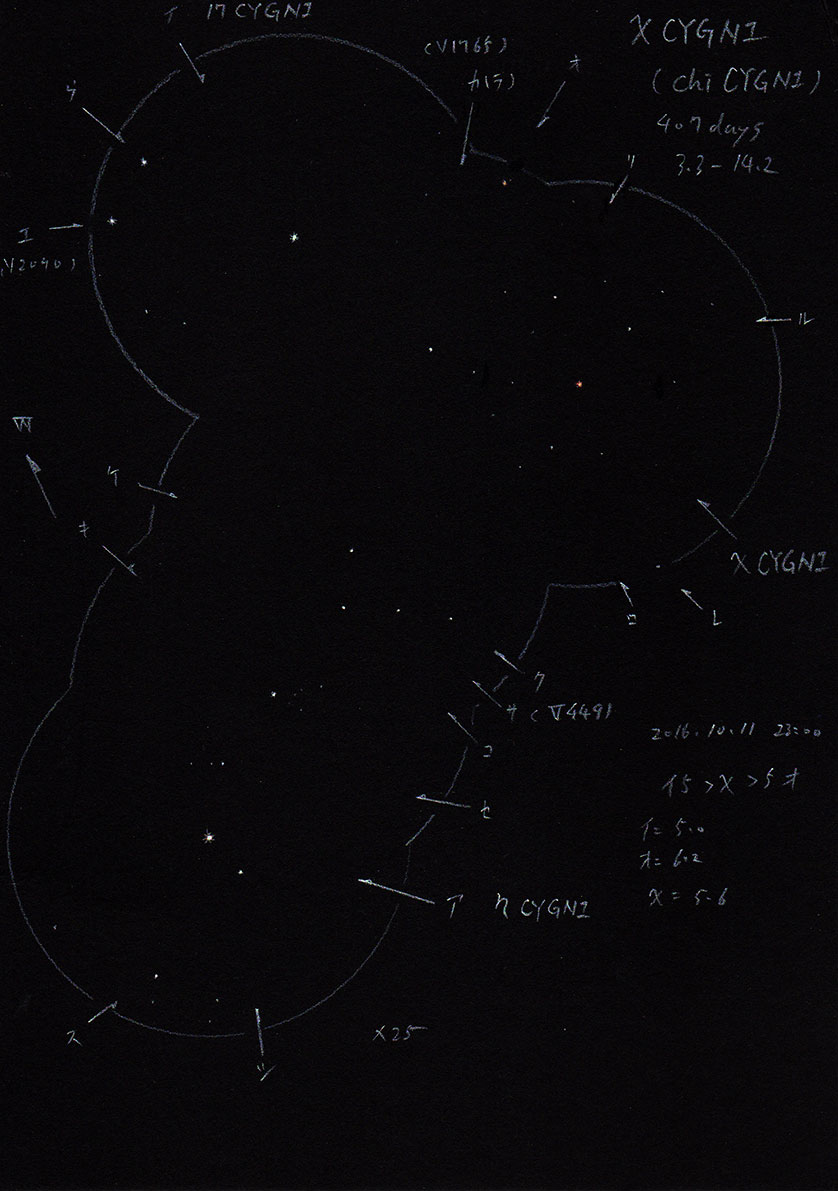 イ 17 CYGNI
(V1765)
カ(ラ)
オ
χ CYGNI
(chi CYGNI)
407 days
3.3-14.2
リ
エ
ル
W
ケ
キ
χ CYGNI
ロ
レ
ク
サ (V449)
コ
2016.10.11 23:00
イ5>χ>5オ
セ
イ=5.0
オ=6.2
χ=5.6
ア η CYGNI
ス
×25
シ